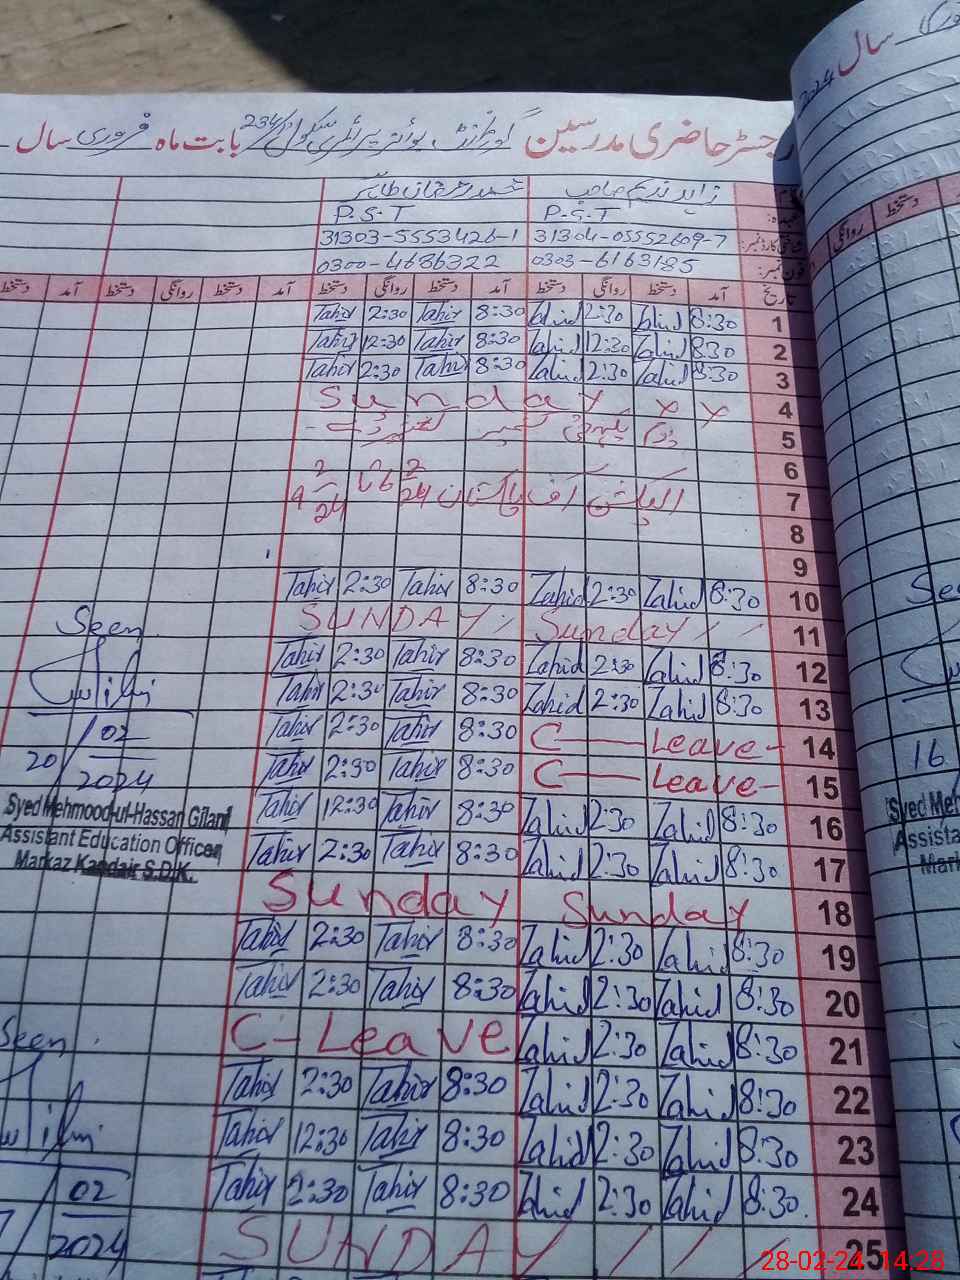 رجسٹر حاضری مدرسین گورنمنٹ بوائز پرائمری سکول 234/ بابت ماہ فروری سال
سال
2024
زاہد ندیم صاحب محمد رمضان طاہر
عہدہ: P.S.T P.S.T
شناختی کارڈ نمبر: 31304-05552609-7 31303-5553426-1
فون نمبر: 0303-6163185 0300-4686322
تاریخ آمد دستخط روانگی دستخط آمد دستخط روانگی دستخط آمد دستخط روانگی دستخط آمد دستخط
روانگی دستخط
1 8:30 Zahid 2:30 Zahid 8:30 Tahir 2:30 Tahir
2 8:30 Zahid 12:30 Zahid 8:30 Tahir 12:30 Tahir
3 8:30 Zahid 2:30 Zahid 8:30 Tahir 2:30 Tahir
4 Sunday
5
6
7 الیکشن آف پاکستان 6/2/24 تا 9/2/24
8
9
10 8:30 Zahid 2:30 Zahid 8:30 Tahir 2:30 Tahir
11 Sunday SUNDAY
12 8:30 Zahid 2:30 Zahid 8:30 Tahir 2:30 Tahir
13 8:30 Zahid 2:30 Zahid 8:30 Tahir 2:30 Tahir
14 C — Leave 8:30 Tahir 2:30 Tahir
15 C — Leave 8:30 Tahir 2:30 Tahir
16 8:30 Zahid 2:30 Zahid 8:30 Tahir 12:30 Tahir
17 8:30 Zahid 2:30 Zahid 8:30 Tahir 2:30 Tahir
18 Sunday Sunday
19 8:30 Zahid 2:30 Zahid 8:30 Tahir 2:30 Tahir
20 8:30 Zahid 2:30 Zahid 8:30 Tahir 2:30 Tahir
21 8:30 Zahid 2:30 Zahid C-Leave
22 8:30 Zahid 2:30 Zahid 8:30 Tahir 2:30 Tahir
23 8:30 Zahid 2:30 Zahid 8:30 Tahir 12:30 Tahir
24 8:30 Zahid 2:30 Zahid 8:30 Tahir 2:30 Tahir
25 SUNDAY
Seen
20/02
2024
Syed Mehmood-ul-Hassan Gilani
Assistant Education Officer
Markaz Kandair S.D.K.
Seen
02
2024
16
Syed Meh
Assista
Mark
28-02-24 14:28